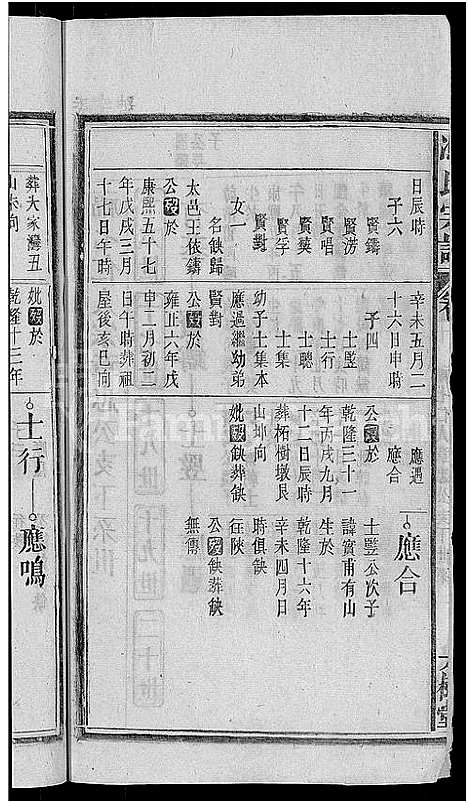 日辰時
子六
賢鑄
賢澇
賢唱
賢英
賢孚
賢對
女一
名缺歸
太邑王依鑄
公歿於
康熙五十七
年戊戌三月
十七日午時
葬大家灣丑
山未向
辛未五月二
十六日申時
子四
士豎
士行
士聰
士集
幼子士集本
應過繼幼弟
賢對
公歿於
雍正六年戊
申二月初二
日午時葬祖
屋後亥巳向
妣歿於
乾隆十三年
應遇
應合
公歿於
乾隆三十一
年丙戌九月
十二日辰時
葬柘樹墩艮
山坤向
妣歿缺葬缺
士行
應合
士豎公次子
諱質甫有山
生於
乾隆十六年
辛未四月日
時俱缺
往陝
公歿缺葬缺
無傳
應鳴
氏宗譜